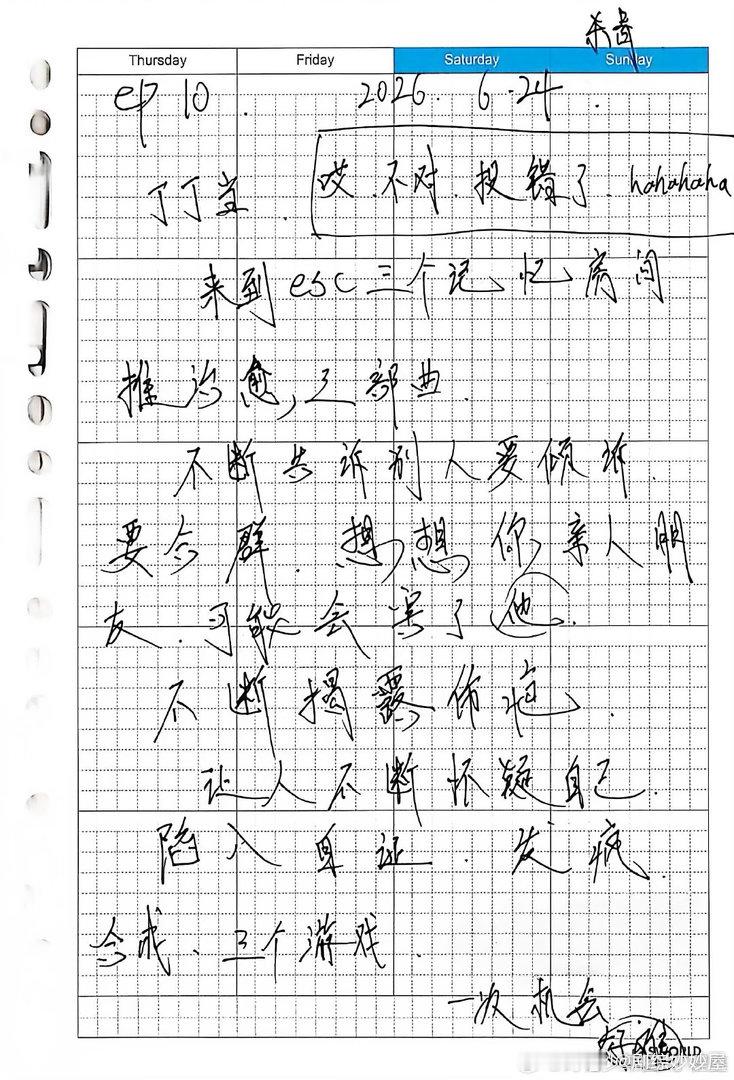 Thursday Friday Saturday Sunday
ep 10. 2026. 6.24.
丁丁堂. 哎.不对.投错了.hahahaha
来到esc三个记忆房间
推治愈,三部曲.
不断告诉别人要倾诉.
要合群.想,想,你,亲人朋
友.可能会害了他.
不断揭露伤疤.
让人不断怀疑自己.
陷入自证.发疯.
合成、三个游戏.
一次机会
好难